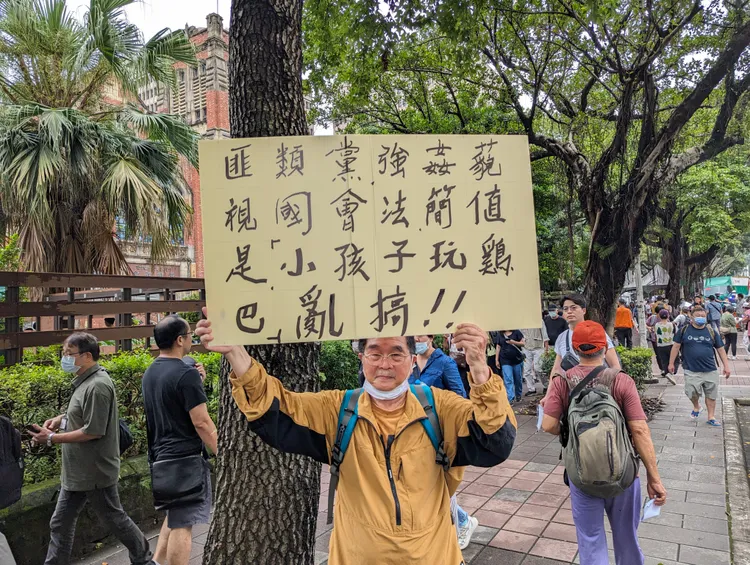 匪類黨強姦藐
視國會法簡值
是「小孩子玩鷄
巴」亂搞!!